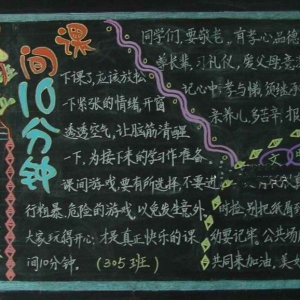 课间10分钟
下课了,应该放松
一下紧张的情绪,开窗
透透空气,让脑筋清醒
一下,为接下来的学习作准备。
课间游戏要有所选择,不要进
行粗暴、危险的游戏,以免发生意外。
大家玩得开心,才是真正快乐的课
间10分钟。(305班)
同学们,要敬老,
尊长辈,习礼仪,爱父母
记心中,孝与
亲养儿,多苦辛,报
文
时捡,别把纸屑
幼要记牢,公共场
共同来加油,美